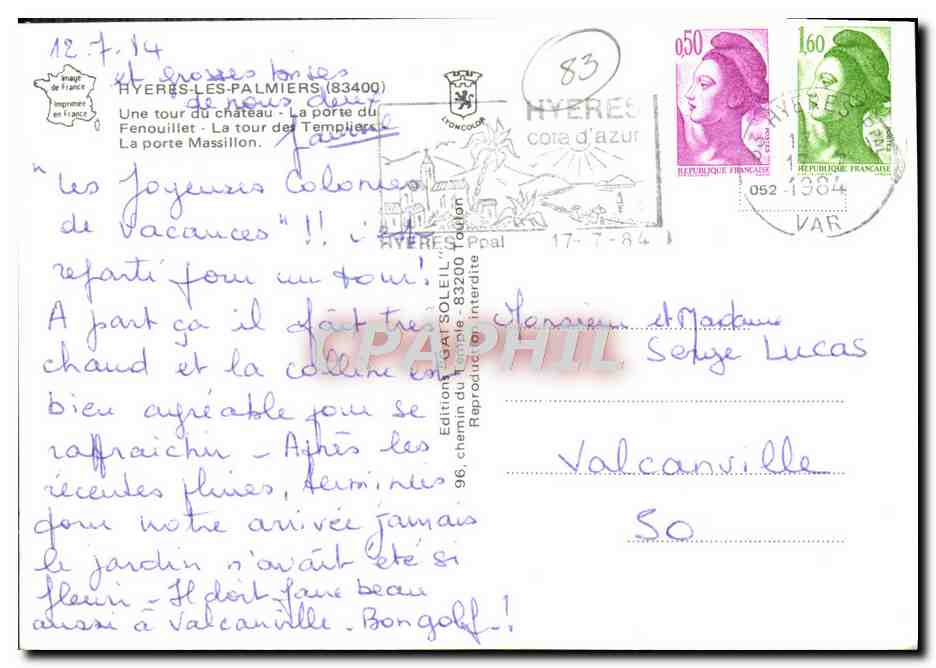 12.7.84
et grosses bises
de nous deux
Image
de France
Imprimée
en France
HYERES-LES-PALMIERS (83400)
Une tour du château - La porte du
Fenouillet - La tour des Templiers
La porte Massillon.
LYONCOLOR
"Les Joyeuses Colonies
de Vacances" !! c'est
reparti pour un tour!
A part ça il fait très
chaud et la colline est
bien agréable pour se
raffraichir - Après les
récentes pluies, terminées
pour notre arrivée jamais
le jardin n'avait été si
fleuri - Il doit faire beau
aussi à Valcanville - Bon golf - !
83
HYERES
cote d'azur
HYERES Ppal 17-7-84
Editions "GAI SOLEIL"
96, chemin du Temple - 83200 Toulon
Reproduction interdite
0,50
POSTES
REPUBLIQUE FRANÇAISE
1,60
POSTES
REPUBLIQUE FRANÇAISE
HYERES PPAL
052 -1984
VAR
CPAPHIL
Monsieur et Madame
Serge LUCAS
Valcanville
50